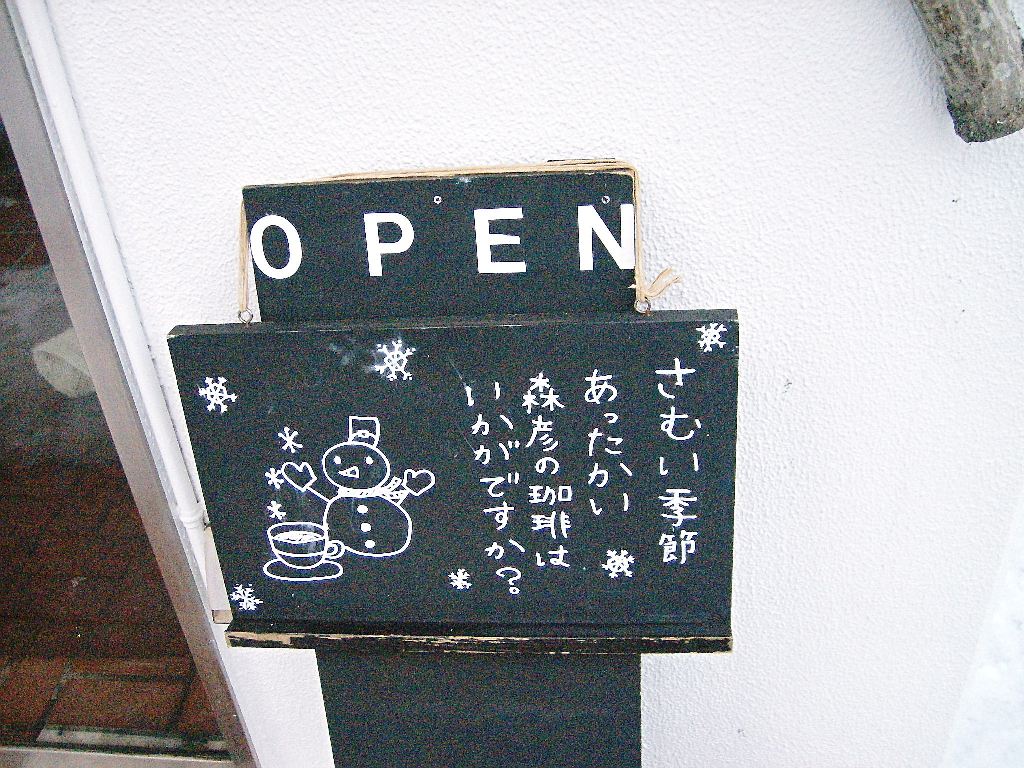 OPEN
さむい季節
あったかい
森彦の珈琲は
いかがですか?